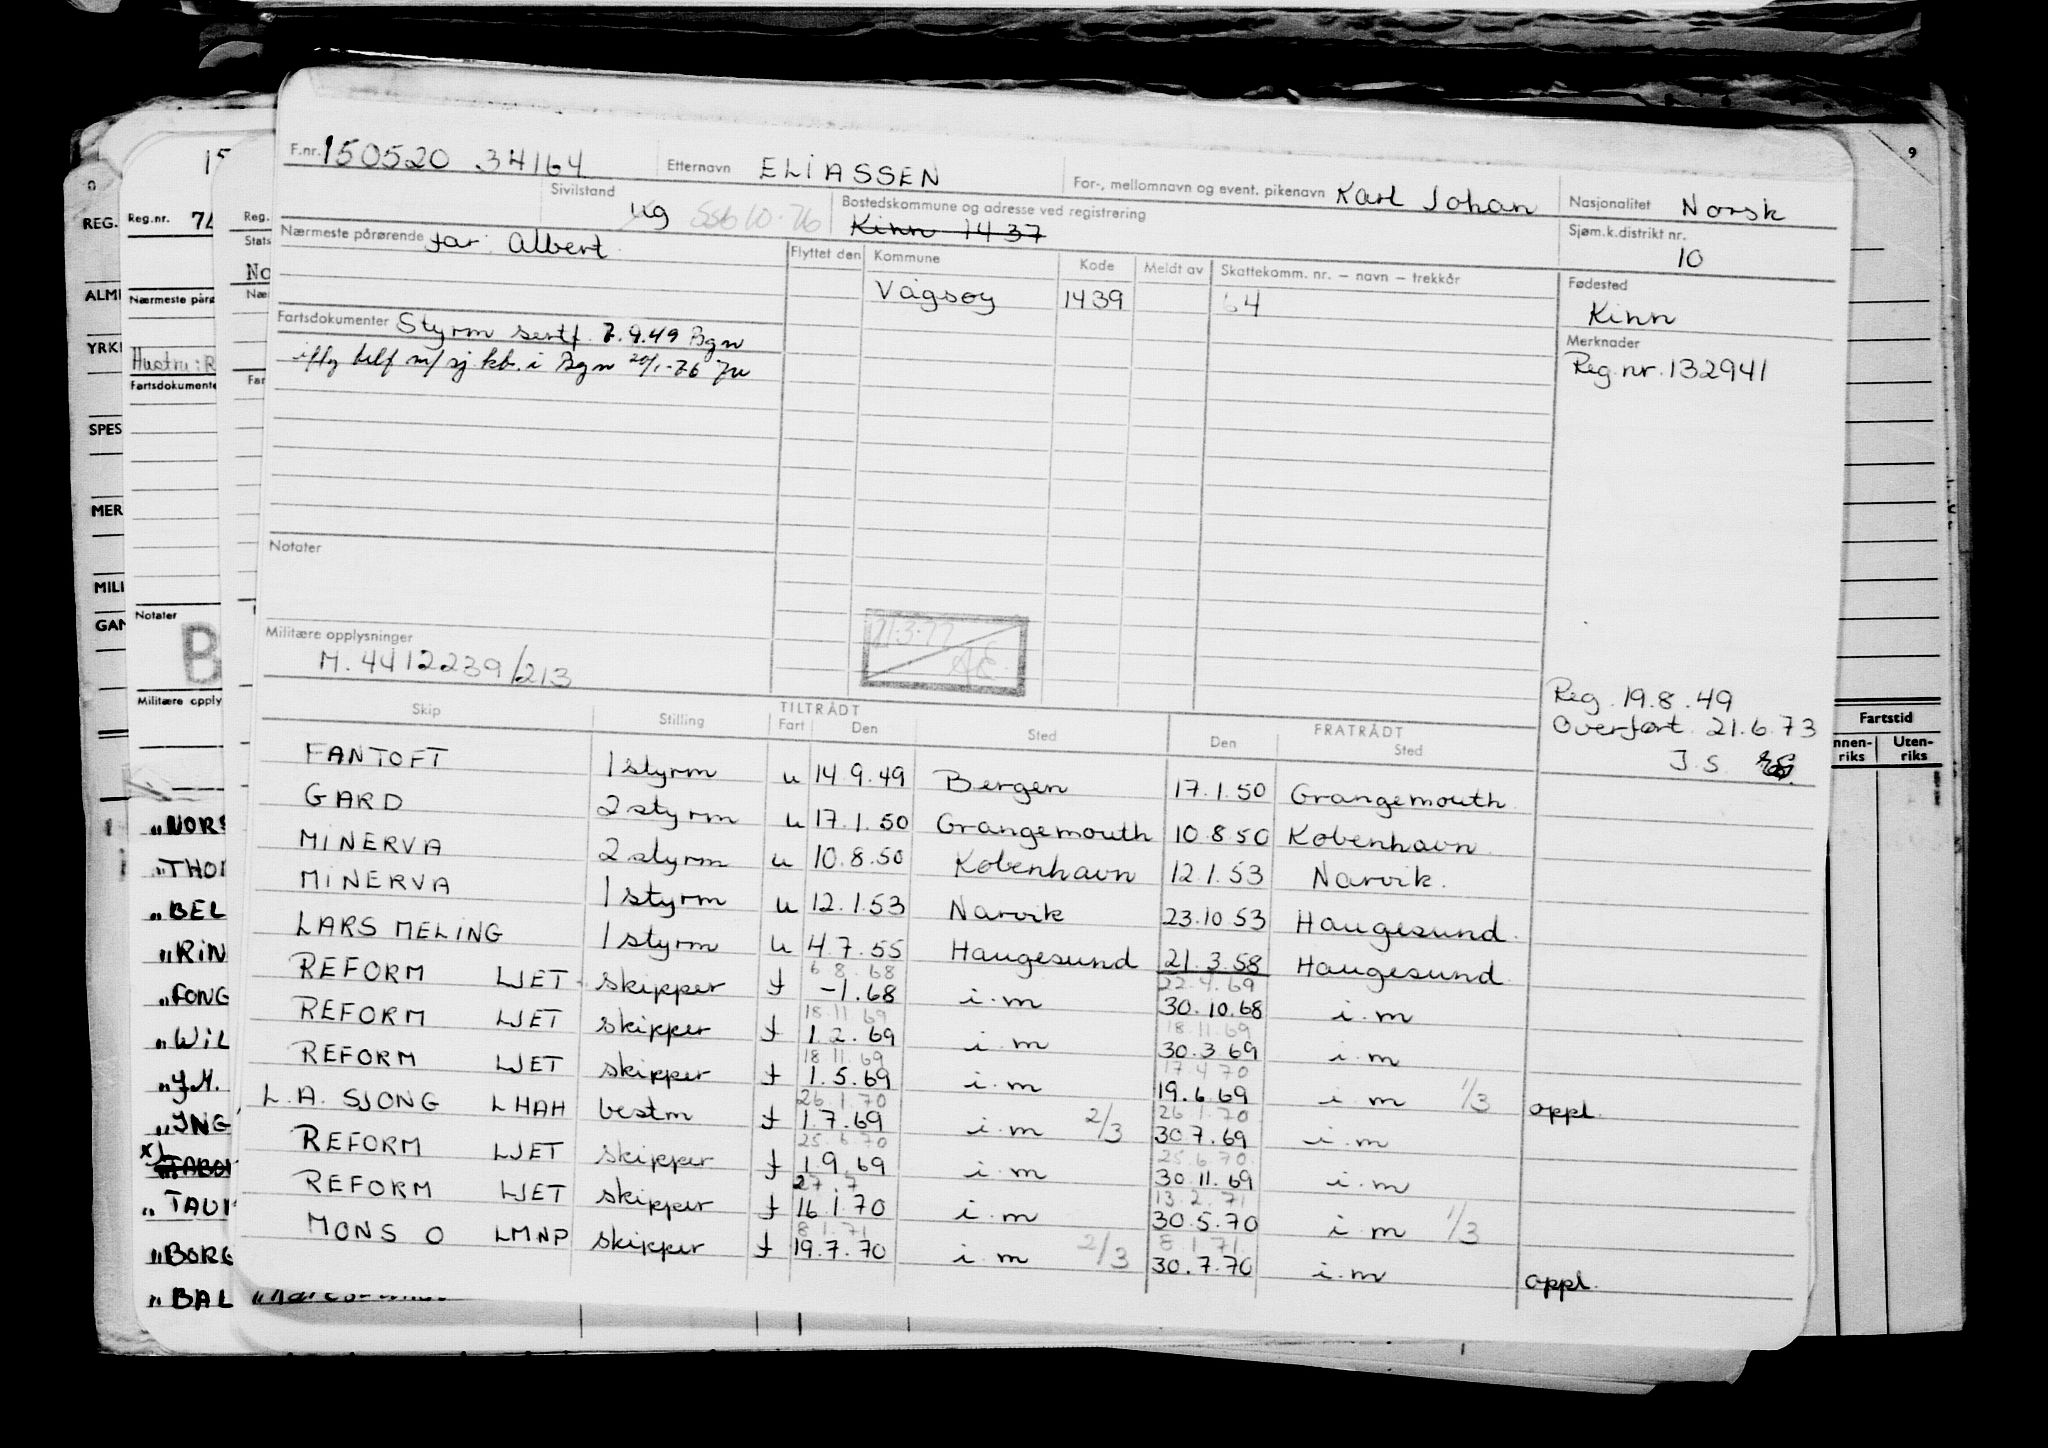 F.nr. 150520 34164 Etternavn ELIASSEN For-, mellomnavn og event. pikenavn Karl Johan Nasjonalitet Norsk
Sivilstand ug SSb 10-76 Bostedskommune og adresse ved registrering Kinn 1437 Sjøm.k.distrikt nr. 10
Nærmeste pårørende far: Albert
Flyttet den Kommune Kode Meldt av Skattekomm. nr. — navn — trekkår Fødested
Vågsøy 1439 64 Kinn
Fartsdokumenter Styrm sertf. 7.9.49 Bgn
i Bgn 20/1-76
Merknader
Reg.nr. 132941
Notater
21.3.77
AE
Militære opplysninger
M. 4412239/213
Reg. 19.8.49
Overført 21.6.73
J.S.
Skip Stilling TILTRÅDT Fart Den Sted FRATRÅDT Den Sted
FANTOFT 1 styrm u 14.9.49 Bergen 17.1.50 Grangemouth
GARD 2 styrm u 17.1.50 Grangemouth 10.8.50 København
MINERVA 2 styrm u 10.8.50 København 12.1.53 Narvik.
MINERVA 1 styrm u 12.1.53 Narvik 23.10.53 Haugesund.
LARS MELING 1 styrm u 4.7.55 Haugesund 21.3.58 Haugesund
6.8.68 22.4.69
REFORM LJET skipper f -1.68 i.m 30.10.68 i.m
18.11.69 18.11.69
REFORM LJET skipper f 1.2.69 i.m 30.3.69 i.m
18.11.69 17.4.70
REFORM LJET skipper f 1.5.69 i.m 19.6.69 i.m 1/3 oppl.
26.1.70 26.1.70
L.A. SJONG LHAH bestm f 1.7.69 i.m 2/3 30.7.69 i.m
25.6.70 25.6.70
REFORM LJET skipper f 1.9.69 i.m 30.11.69 i.m
27.7 13.2.71
REFORM LJET skipper f 16.1.70 i.m 30.5.70 i.m 1/3
8.1.71 8.1.71
MONS O LMNP skipper f 19.7.70 i.m 2/3 30.7.70 i.m oppl.
9
REG.
ALM
YRK
SPES
MER
MILI
GAN
Reg.nr. 74
Nærmeste pårø
Hustru: R
Fartsdokumente
Notater
B
Militære opply
Reg.
Stats
No
Nær
Far
"NORS
"THO
"BEL
"RIN
"FONG
"WIL
"J.H.
"ING
x)
"TABO
"TAU
"BORG
"BAL
Fartstid
nnen-riks Uten-riks